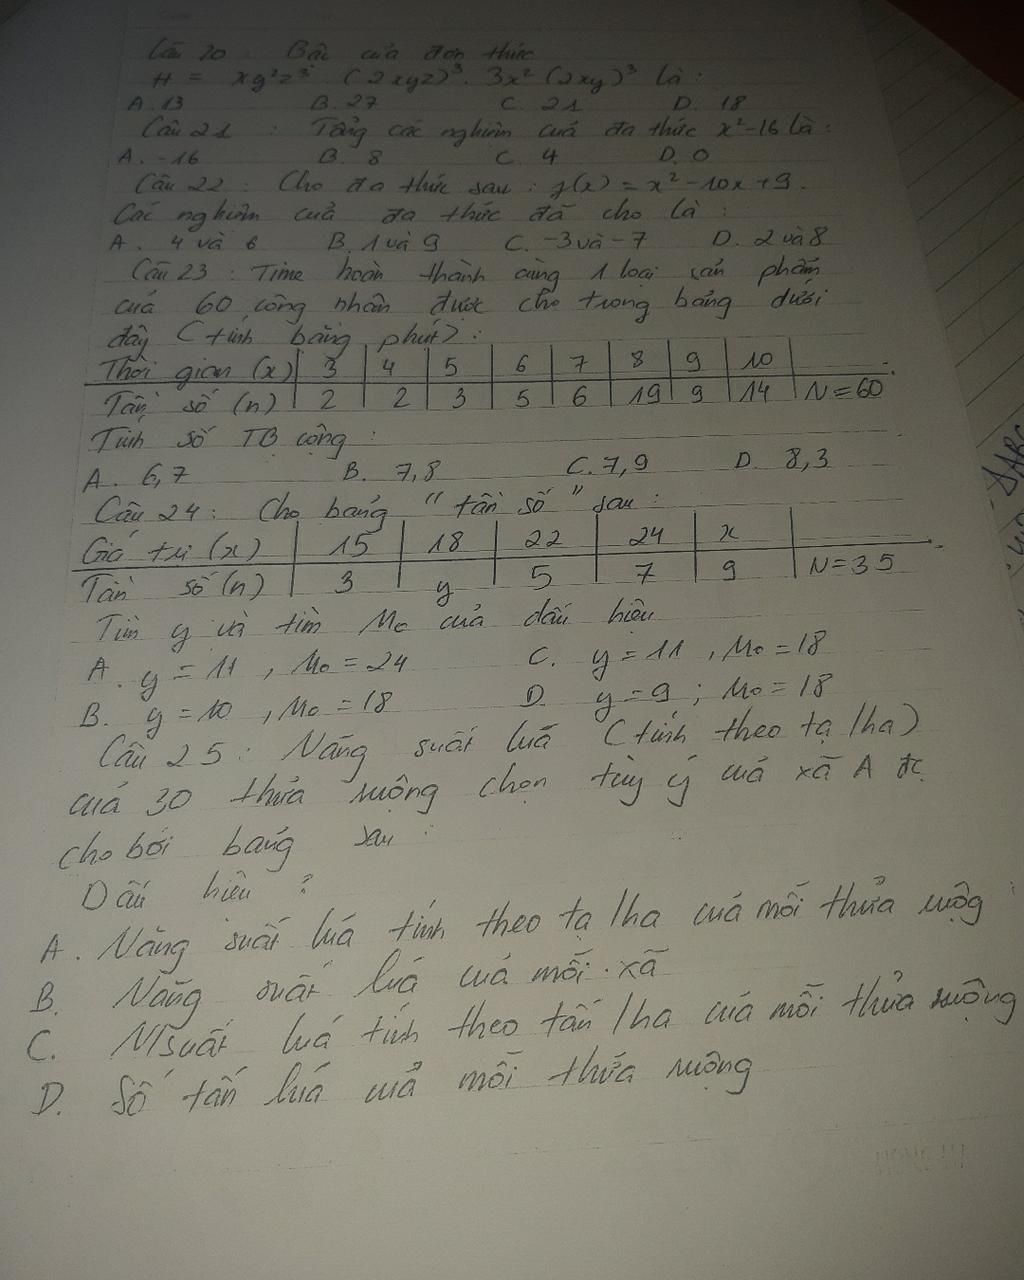 Câu 20 : Bậc của đơn thức
H = xy²z³ (2xyz)³. 3x² (2xy)³ là :
A. 13 B. 27 C. 21 D. 18
Câu 21 : Tổng các nghiệm của đa thức x²-16 là :
A. -16 B. 8 C. 4 D. 0
Câu 22 : Cho đa thức sau : f(x) = x² - 10x + 9.
Các nghiệm của đa thức đã cho là :
A. 4 và 6 B. 1 và 9 C. -3 và -7 D. 2 và 8
Câu 23 : Time hoàn thành cùng 1 loại sản phẩm
của 60 công nhân được cho trong bảng dưới
đây (tính bằng phút) :
Thời gian (x) 3 4 5 6 7 8 9 10
Tần số (n) 2 2 3 5 6 19 9 14 N = 60
Tính số TB cộng :
A. 6,7 B. 7,8 C. 7,9 D. 8,3
Câu 24 : Cho bảng "tần số" sau :
Giá trị (x) 15 18 22 24 x
Tần số (n) 3 y 5 7 9 N = 35
Tìm y và tìm Mo của dấu hiệu
A. y = 11 , Mo = 24 C. y = 11 , Mo = 18
B. y = 10 , Mo = 18 D. y = 9 ; Mo = 18
Câu 25 : Năng suất lúa (tính theo tạ/ha)
của 30 thửa ruộng chọn tùy ý của xã A đc
cho bởi bảng sau :
Dấu hiệu ?
A. Năng suất lúa tính theo tạ/ha của mỗi thửa ruộg
B. Năng suất lúa của mỗi xã
C. N suất lúa tính theo tấn/ha của mỗi thửa ruộng
D. Số tấn lúa của mỗi thửa ruộng